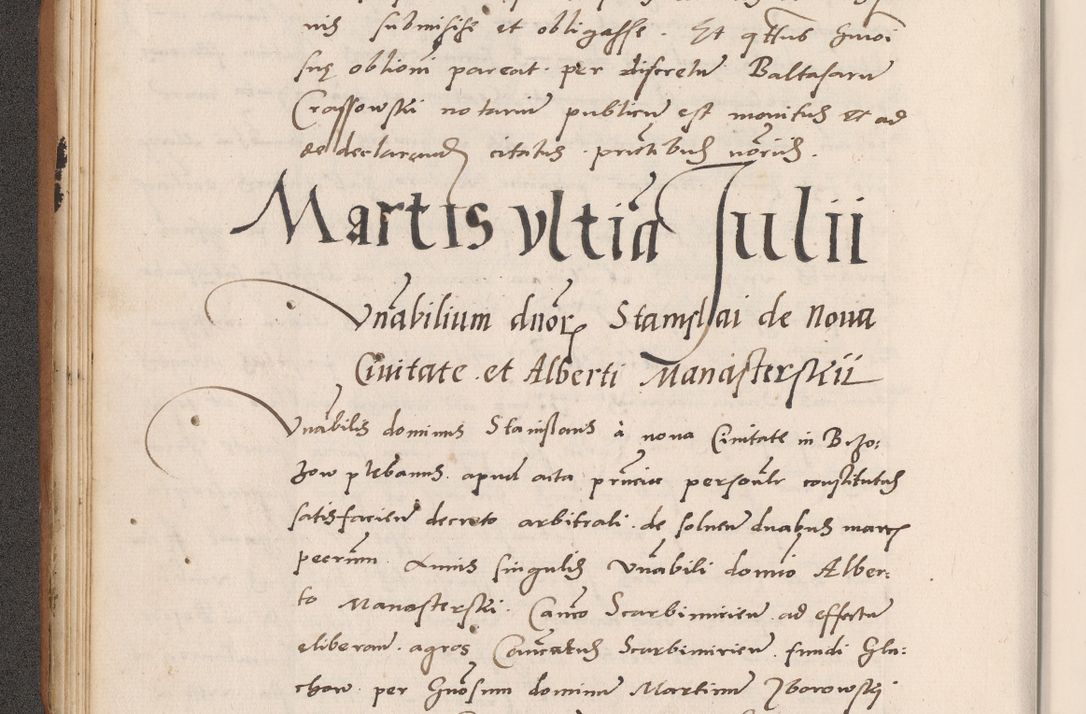 nis submisisse et obligasse. Et qttus hmoi
suę obliōni pareat. per discretū Baltasarū
Crassowski notariū publicū est monitus et ad
declarandū citatus. prntibus
Martis vltīa Julii
Vnābilium dnōrꝫ Stanislai de Noua
Ciuitate et Alberti Manasterskii
Vnābilis dominus Stanislaus à noua Ciuitate in Bzo:
zow plebanus. apud acta prńcia personlr constitutus
satisfaciens decreto arbitrali. de soluen duabus marcꝫ
pecunm. Annis singulis Vnābili domio Alber:
to Manasterski. Canco Scarbimiricn. ad effectū
eliberan. agros Conucatus Scarbimiricn. fundi Gla:
chow. per Gnosum dominū Martinū Zborowski